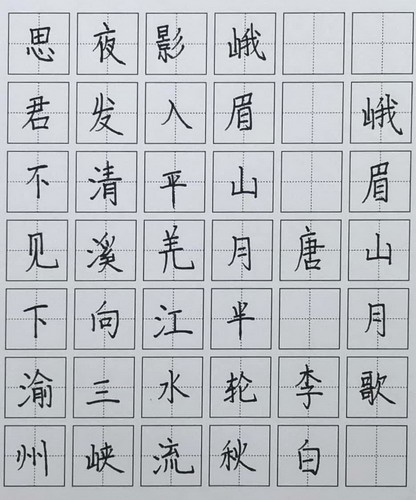 峨眉山月歌
唐 李白
峨眉山月半轮秋
影入平羌江水流
夜发清溪向三峡
思君不见下渝州